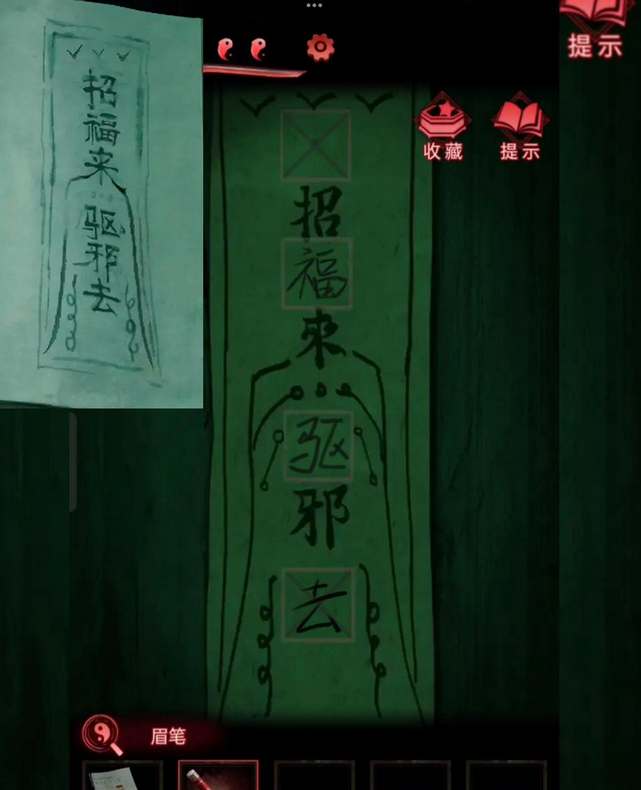 招
福
来
驱
邪
去
提示
收藏
提示
招
福
來
驱
邪
去
眉笔